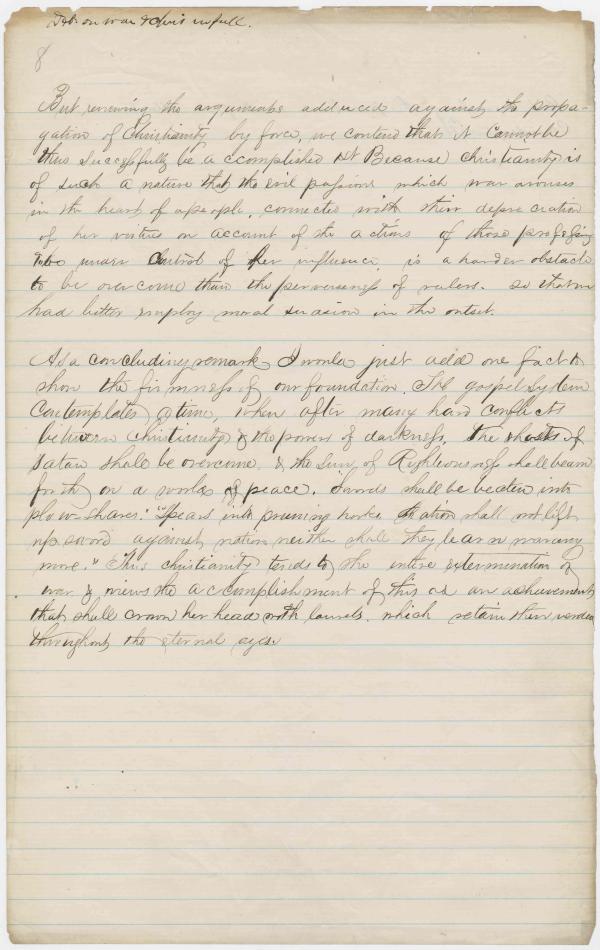 Deb. on war & Chris in full.
8
But reviewing the arguments adduced against the propa-
gation of Christianity by force, we contend that it cannot be
thus successfully be accomplished 1st Because christianity is
of such a nature that the evil passions which war arouses
in the heart of a people, connected with their depreciation
of her virtues on account of the actions of those professing
to be under control of her influence, is a harder obstacle
to be overcome than the perverseness of rulers. so that we
had better employ moral suasion in the outset.
As a concluding remark I would just add one fact to
show the firmness of our foundation. The gospel system
contemplates a time, when after many hard conflicts
between christianity & the powers of darkness, the hosts of
satan shall be overcome, & the Sun of Righteousness shall beam
forth on a world of peace. Swords shall be beaten into
plow-shares. "Spears into pruning hooks. Nation shall not lift
up sword against nation neither shall they learn war any
more." This christianity tends to the entire extermination of
war & views the accomplishment of this as an achievement
that shall crown her head with laurels, which retain their verdure
throughout the eternal ages